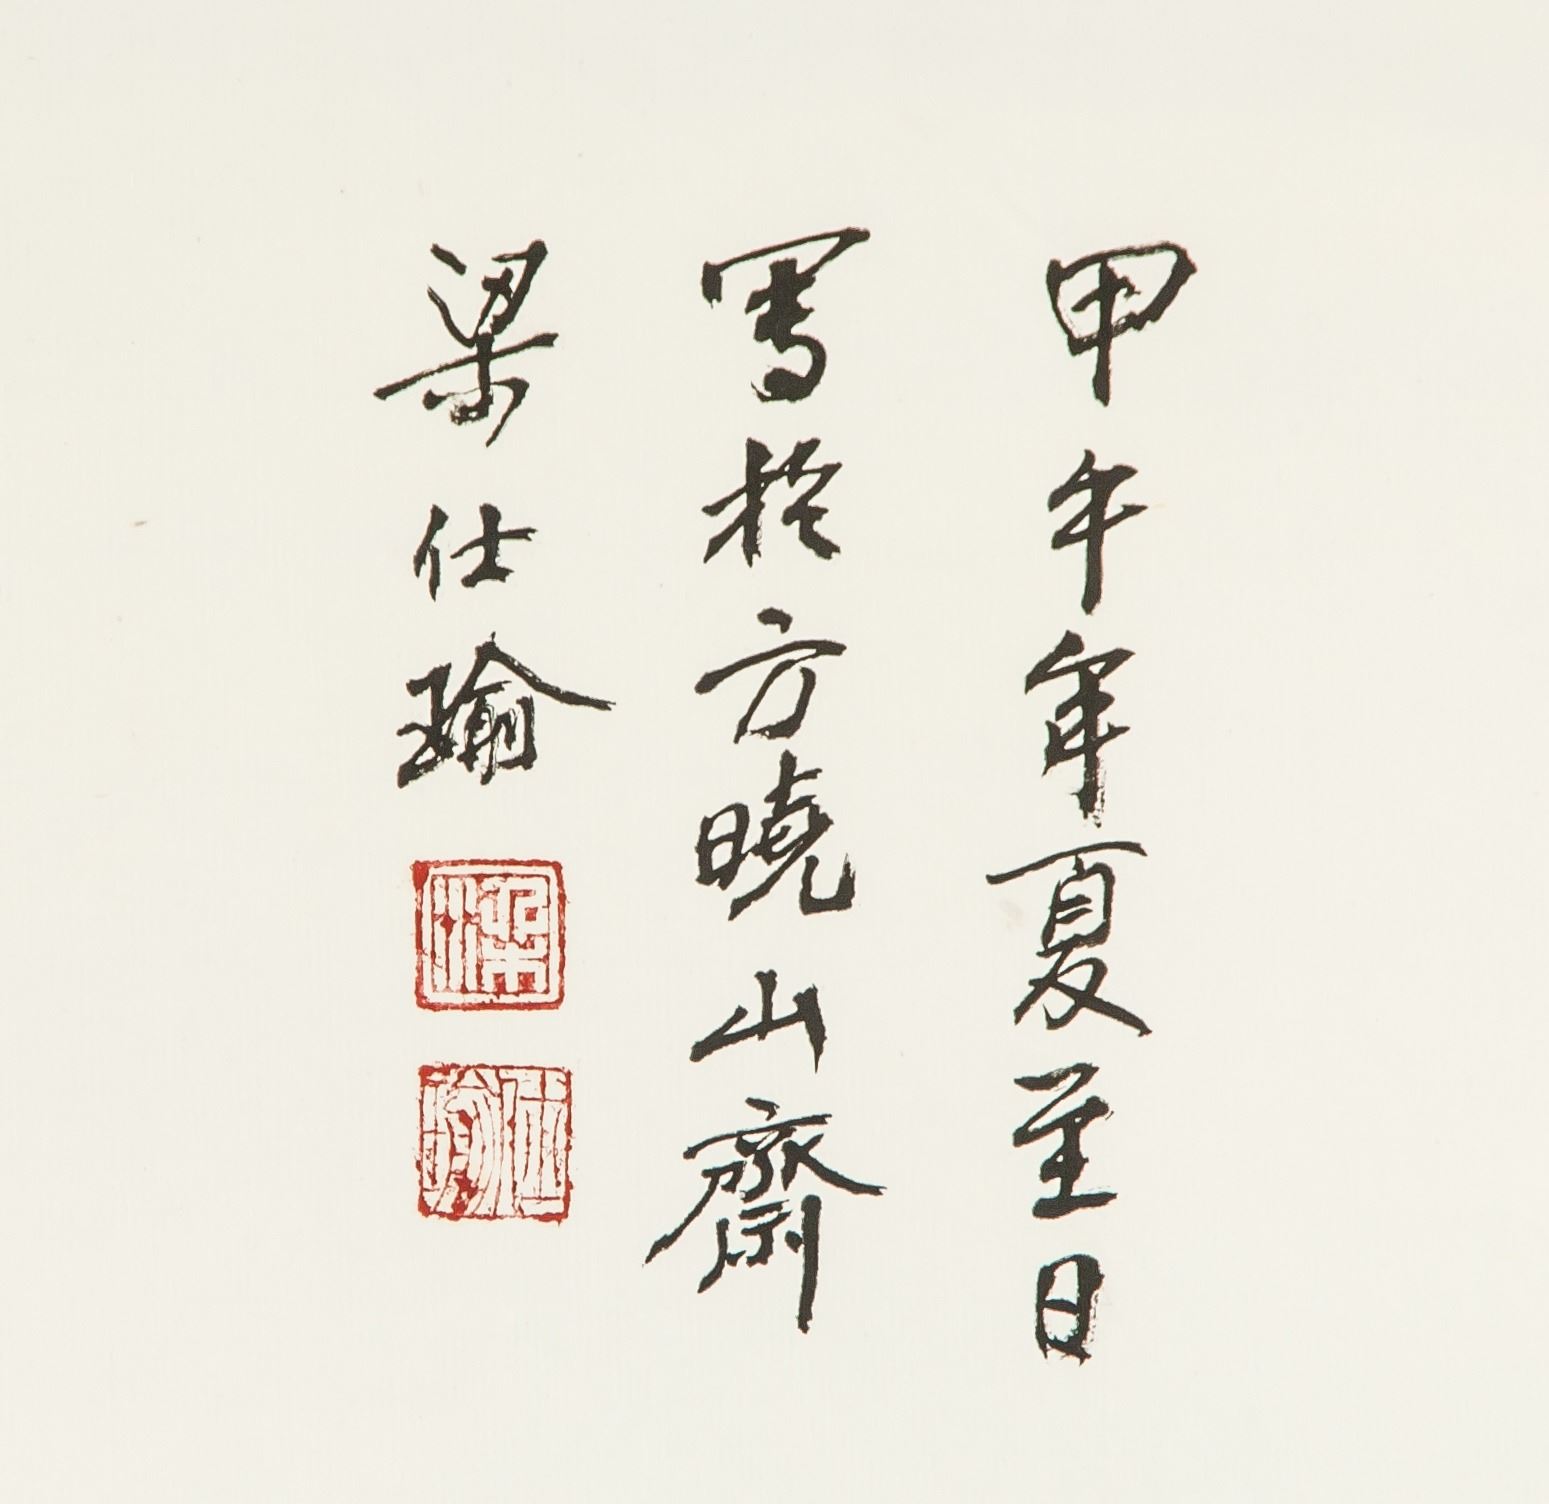 甲午年夏至日
寫於方曉山齋
梁仕瑜
梁
仕瑜